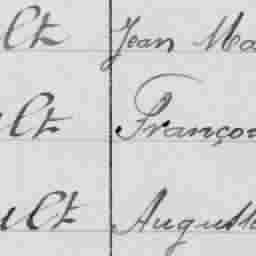 lt Jean Ma
lt Françoi
ult Auguste